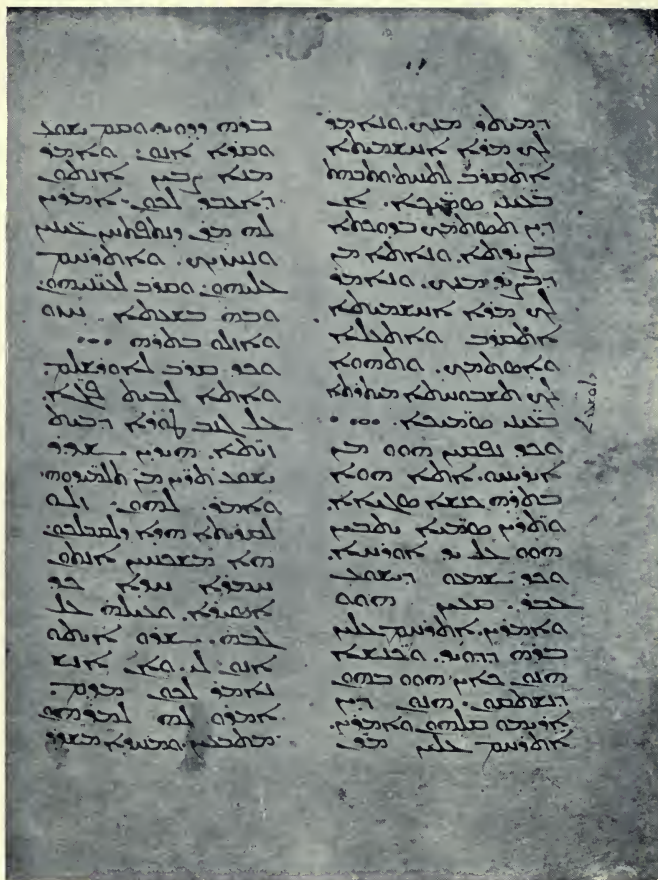 ܕܡܝܩܪ ܡܢܟ. ܘܢܐܡܪ
ܠܟ ܡܪܐ ܐܚܫܡܝܬܐ
ܐܬܩܪܒ ܠܬܚܬ ܘܬܒܗܬ
ܒܥܝܢܝ ܣܡܝܟܐ. ܐܢ
ܕܝܢ ܬܣܬܡܟ ܒܕܘܟܬܐ
ܒܨܝܪܬܐ. ܘܢܐܬܐ ܡܢ
ܕܒܨܝܪ ܡܢܟ. ܘܢܐܡܪ
ܠܟ ܡܪܐ ܐܚܫܡܝܬܐ
ܐܬܩܪܒ ܘܐܬܥܠܐ
ܘܐܣܬܡܟ. ܘܬܗܘܐ
ܠܟ ܬܫܒܘܚܬܐ ܝܬܝܪܬܐ
ܒܥܝܢܝ ܣܡܝܟܐ.
ܘܟܕ ܢܦܩܝܢ ܗܘܘ ܡܢ
ܐܝܪܝܚܘ. ܐܬܐ ܗܘܐ
ܒܬܪܗ ܟܢܫܐ ܣܓܝܐܐ.
ܘܬܪܝܢ ܣܡܝܐ ܝܬܒܝܢ
ܗܘܘ ܥܠ ܝܕ ܐܘܪܚܐ.
ܘܟܕ ܫܡܥܘ ܕܝܫܘܥ
ܥܒܪ. ܩܥܝܢ ܗܘܘ
ܘܐܡܪܝܢ. ܐܬܪܚܡ ܥܠܝܢ
ܒܪܗ ܕܕܘܝܕ. ܘܟܢܫܐ
ܗܢܘܢ ܟܐܝܢ ܗܘܘ ܒܗܘܢ
ܕܢܫܬܩܘܢ. ܗܢܘܢ ܕܝܢ
ܐܪܝܡܘ ܩܠܗܘܢ ܘܐܡܪܝܢ.
ܐܬܪܚܡ ܥܠܝܢ ܡܪܢ
ܒܪܗ ܕܕܘܝܕ. ܘܩܡ ܝܫܘܥ
ܘܩܪܐ ܐܢܘܢ. ܘܐܡܪ
ܡܢܐ ܨܒܝܢ ܐܢܬܘܢ
ܕܐܥܒܕ ܠܟܘܢ. ܐܡܪܝܢ
ܠܗ ܡܪܢ ܕܢܬܦܬܚܢ ܥܝܢܝܢ
ܘܢܚܙܝܟ. ܘܐܬܪܚܡ
ܥܠܝܗܘܢ. ܘܩܪܒ ܠܥܝܢܝܗܘܢ.
ܘܒܗ ܒܫܥܬܐ ܚܙܘ
ܘܐܙܠܘ ܒܬܪܗ
ܘܟܕ ܩܪܒ ܠܐܘܪܫܠܡ.
ܘܐܬܐ ܠܒܝܬ ܦܓܐ.
ܥܠ ܓܢܒ ܛܘܪܐ ܕܒܝܬ
ܙܝܬܐ. ܗܝܕܝܢ ܫܕܪ
ܝܫܘܥ ܬܪܝܢ ܡܢ ܬܠܡܝܕܘܗܝ.
ܘܐܡܪ ܠܗܘܢ. ܙܠܘ
ܠܩܪܝܬܐ ܗܕܐ ܕܠܩܘܒܠܟܘܢ.
ܗܐ ܡܫܟܚܝܢ ܐܢܬܘܢ
ܚܡܪܐ ܚܕܐ ܟܕ
ܐܣܝܪܐ. ܘܥܝܠܗ ܥܠ
ܓܒܗ. ܫܪܘ ܐܝܬܘ
ܐܢܘܢ ܠܝ. ܘܐܢ ܐܢܫ
ܢܐܡܪ ܠܟܘܢ ܡܕܡ.
ܐܡܪܘ ܠܗ ܠܡܪܗܘܢ
ܡܬܒܥܝܢ. ܘܡܚܕܐ ܡܫܕܪ